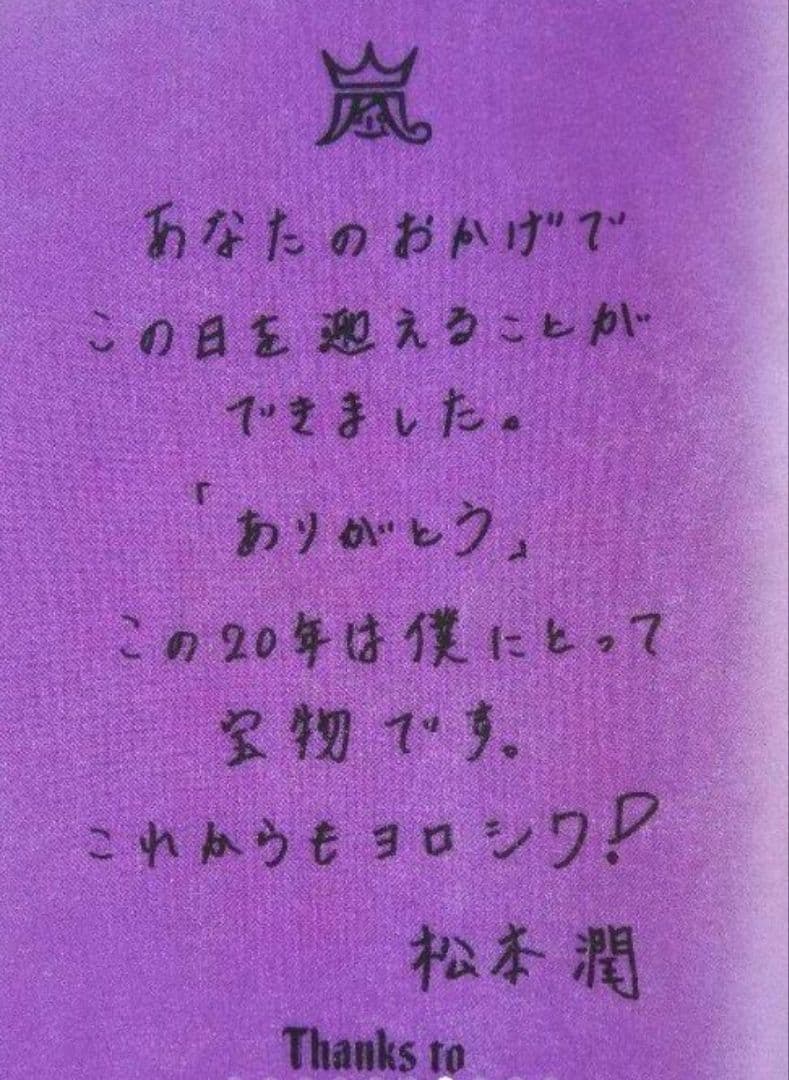 嵐
あなたのおかげで
この日を迎えることが
できました。
「ありがとう」
この20年は僕にとって
宝物です。
これからもヨロシク!
松本潤
Thanks to